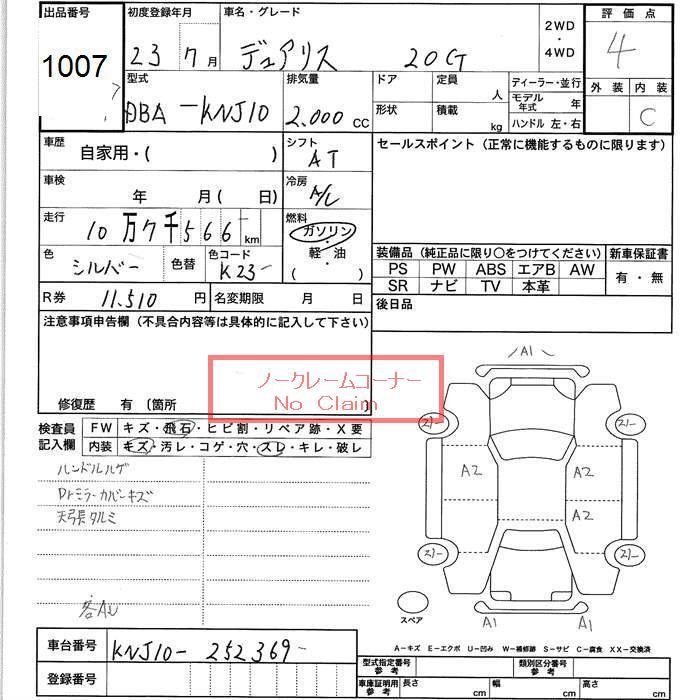 出品番号
1007
初度登録年月
23 7月
車名・グレード
デュアリス 20G
2WD
・
4WD
評価点
4
外装 内装
C
型式
DBA-KNJ10
排気量
2.000 cc
ドア
形状
定員 人
積載 kg
ディーラー・並行
モデル年式 年
ハンドル 左・右
車歴
自家用・( )
シフト
AT
セールスポイント (正常に機能するものに限ります)
車検
年 月( 日)
冷房
A/C
走行
10万7千566- km
燃料
ガソリン
・
軽・油
( )
色
シルバー
色替
色コード
K23-
装備品 (純正品に限り○をつけてください)
PS PW ABS エアB AW
SR ナビ TV 本革
新車保証書
有・無
R券 11.510 円
名変期限 月 日
後日品
注意事項申告欄 (不具合内容等は具体的に記入して下さい)
ノークレームコーナー
No Claim
修復歴 有 〔箇所
検査員
記入欄
FW キズ・飛石・ヒビ割・リペア跡・X要
内装 キズ・汚レ・コゲ・穴・スレ・キレ・破レ
ハンドルハゲ
Drミラーカバーキズ
天張タルミ
各AU
A1
スリー スリー
A2 A2
A2
スリー スリー
A1 A1
スペア
A-キズ E-エクボ U-凹み W-補修跡 S-サビ C-腐食 XX-交換済
車台番号
KNJ10-252369-
登録番号
型式指定番号
参考
類別区分番号
参考
車庫証明用
参考
長さ cm
幅 cm
高さ cm